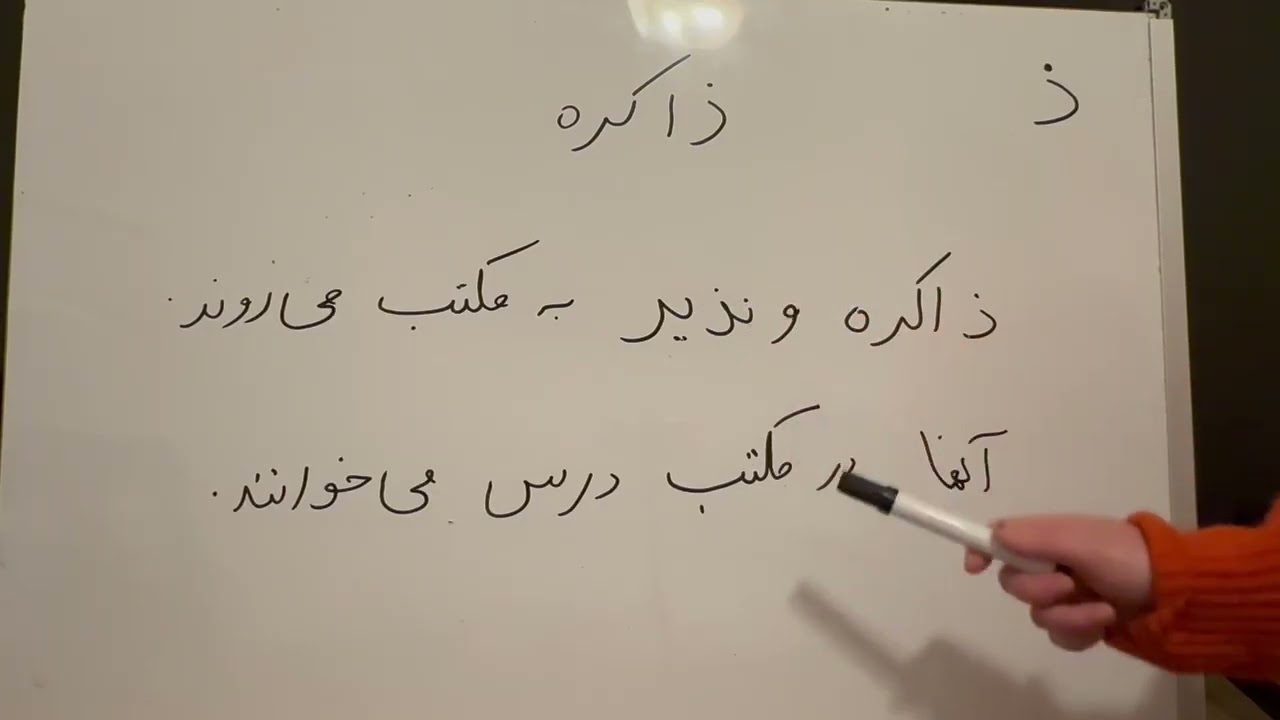 ذ ذاکره
ذاکره و نذیر به مکتب می‌روند.
آنها در مکتب درس می‌خوانند.